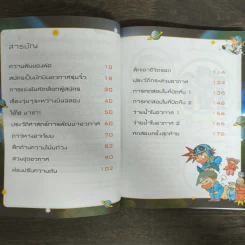 สารบัญ
ความฝันของผม 10
สมัครเป็นนักบินอวกาศรุ่นจิ๋ว 18
การแข่งขันคัดเลือกผู้สมัคร 30
เรื่องวุ่นๆระหว่างฝึกสอบ 40
ไร้ซึ่ง นาซา! 50
ประวัติศาสตร์การพัฒนาอวกาศ 60
ดาวหางอาเรียน 70
ฝึกต้านความโน้มถ่วง 82
ส่วนชุดอวกาศ 90
ห้องปรับความดัน 102
ฝึกเอาชีวิตรอด 114
ประวัติกระสวยอวกาศ 124
การทดสอบในห้องปิดทึบ 1 134
การทดสอบในห้องปิดทึบ 2 145
ว่ายน้ำในอวกาศ 1 156
ว่ายน้ำในอวกาศ 2 165
ทดสอบครั้งสุดท้าย 175